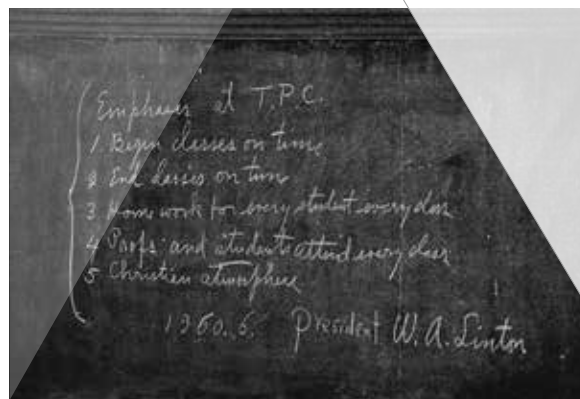 Emphases at T.P.C.
1. Begin classes on time
2 End classes on time
3. Home work for every student every class
4 Profs. and students attend every class
5 Christian atmosphere
1960. 6. President W. A. Linton